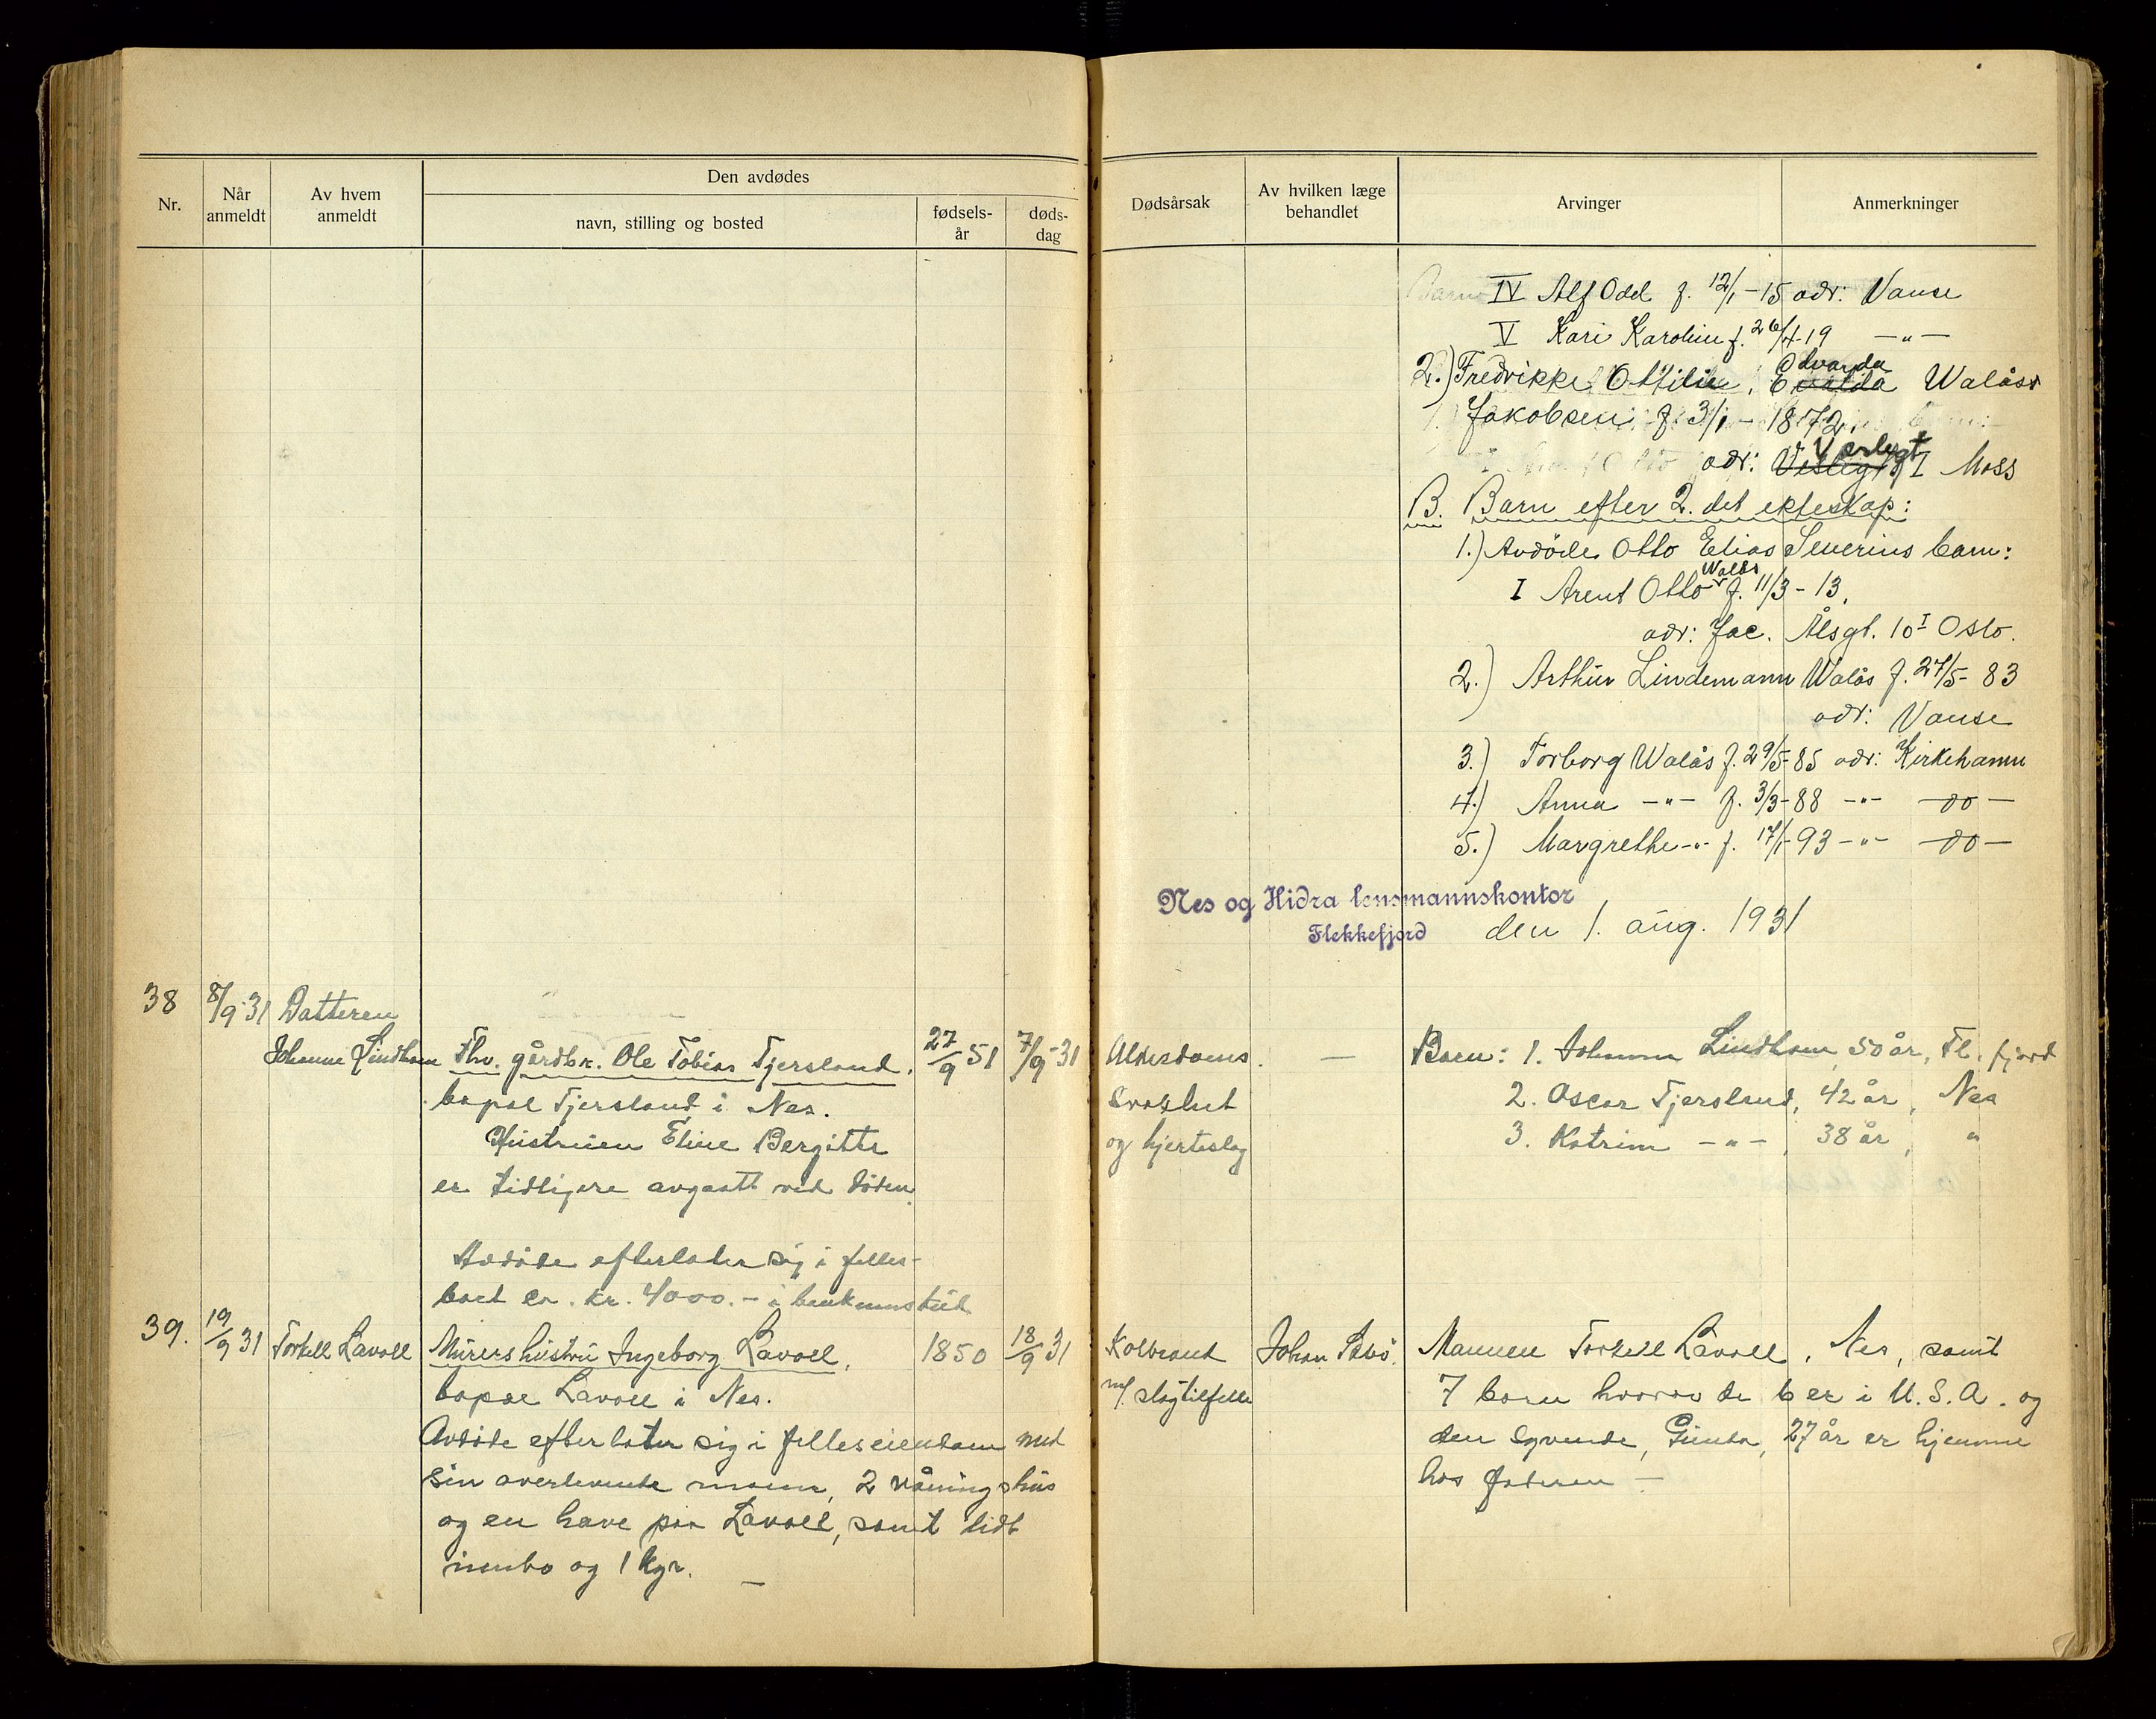 Nr.
Når anmeldt
Av hvem anmeldt
Den avdødes
navn, stilling og bosted
fødsels-år
døds-dag
Dødsårsak
Av hvilken læge behandlet
Arvinger
Anmerkninger
IV Alf Odd f. 12/1-15 adr: Vanse
V Kari Karoline f. 26/4-19 -"-
2.) Fredrikke Ottilie, Edvarda Walås
Jakobsen f. 3/1-1872,
adr: Værlegt I Moss
B. Barn efter 2. det ekteskap:
1.) Avdöde Otto Elias Severius barn:
I Arent Otto Walås f. 11/3-13.
adr: Jac. Ålsgt. 10 I Oslo.
2.) Arthur Lindemann Walås f. 27/5-83
adr: Vanse
3.) Torborg Walås f. 29/5-85 adr: Kirkehamn
4.) Anna -"- f. 3/3-88 -"- -do-
5.) Margrethe -"- f. 17/1-93 -"- -do-
Nes og Hidra lensmannskontor
Flekkefjord den 1. aug. 1931
38 8/9-31 Datteren
Johanne Lindham Fhv. gårdbr. Ole Tobias Tjersland. 27/9 51 7/9-31 Alderdoms - Barn: 1. Johanne Lindham, 50 år, Fl.fjord
bopæl Tjersland i Nes. svakhet 2. Oscar Tjersland, 42 år, Nes
Hustruen Eline Bergitte og hjerteslag 3. Katrine -"-, 38 år, "
er tidligere avgaatt ved döden.
Avdöde efterlater sig i felles-
boet ca. kr. 4000.- i bankinnskud
39. 19/9 31 Torkell Lavoll Murers hustru Ingeborg Lavoll, 1850 18/9 31 Koldbrand Johan Stbö. Mannen Torkell Lavoll, Nes, samt
bopæl Lavoll i Nes. m/ slagtilfelle 7 barn hvorav de 6 er i U.S.A. og
Avdöde efterlater sig i felleseiendom med den syvende, Gunda, 27 år er hjemme
sin overlevende mann, 2 våningshus hos faderen -
og en have paa Lavoll, samt lidt
innbo og 1 kyr. -